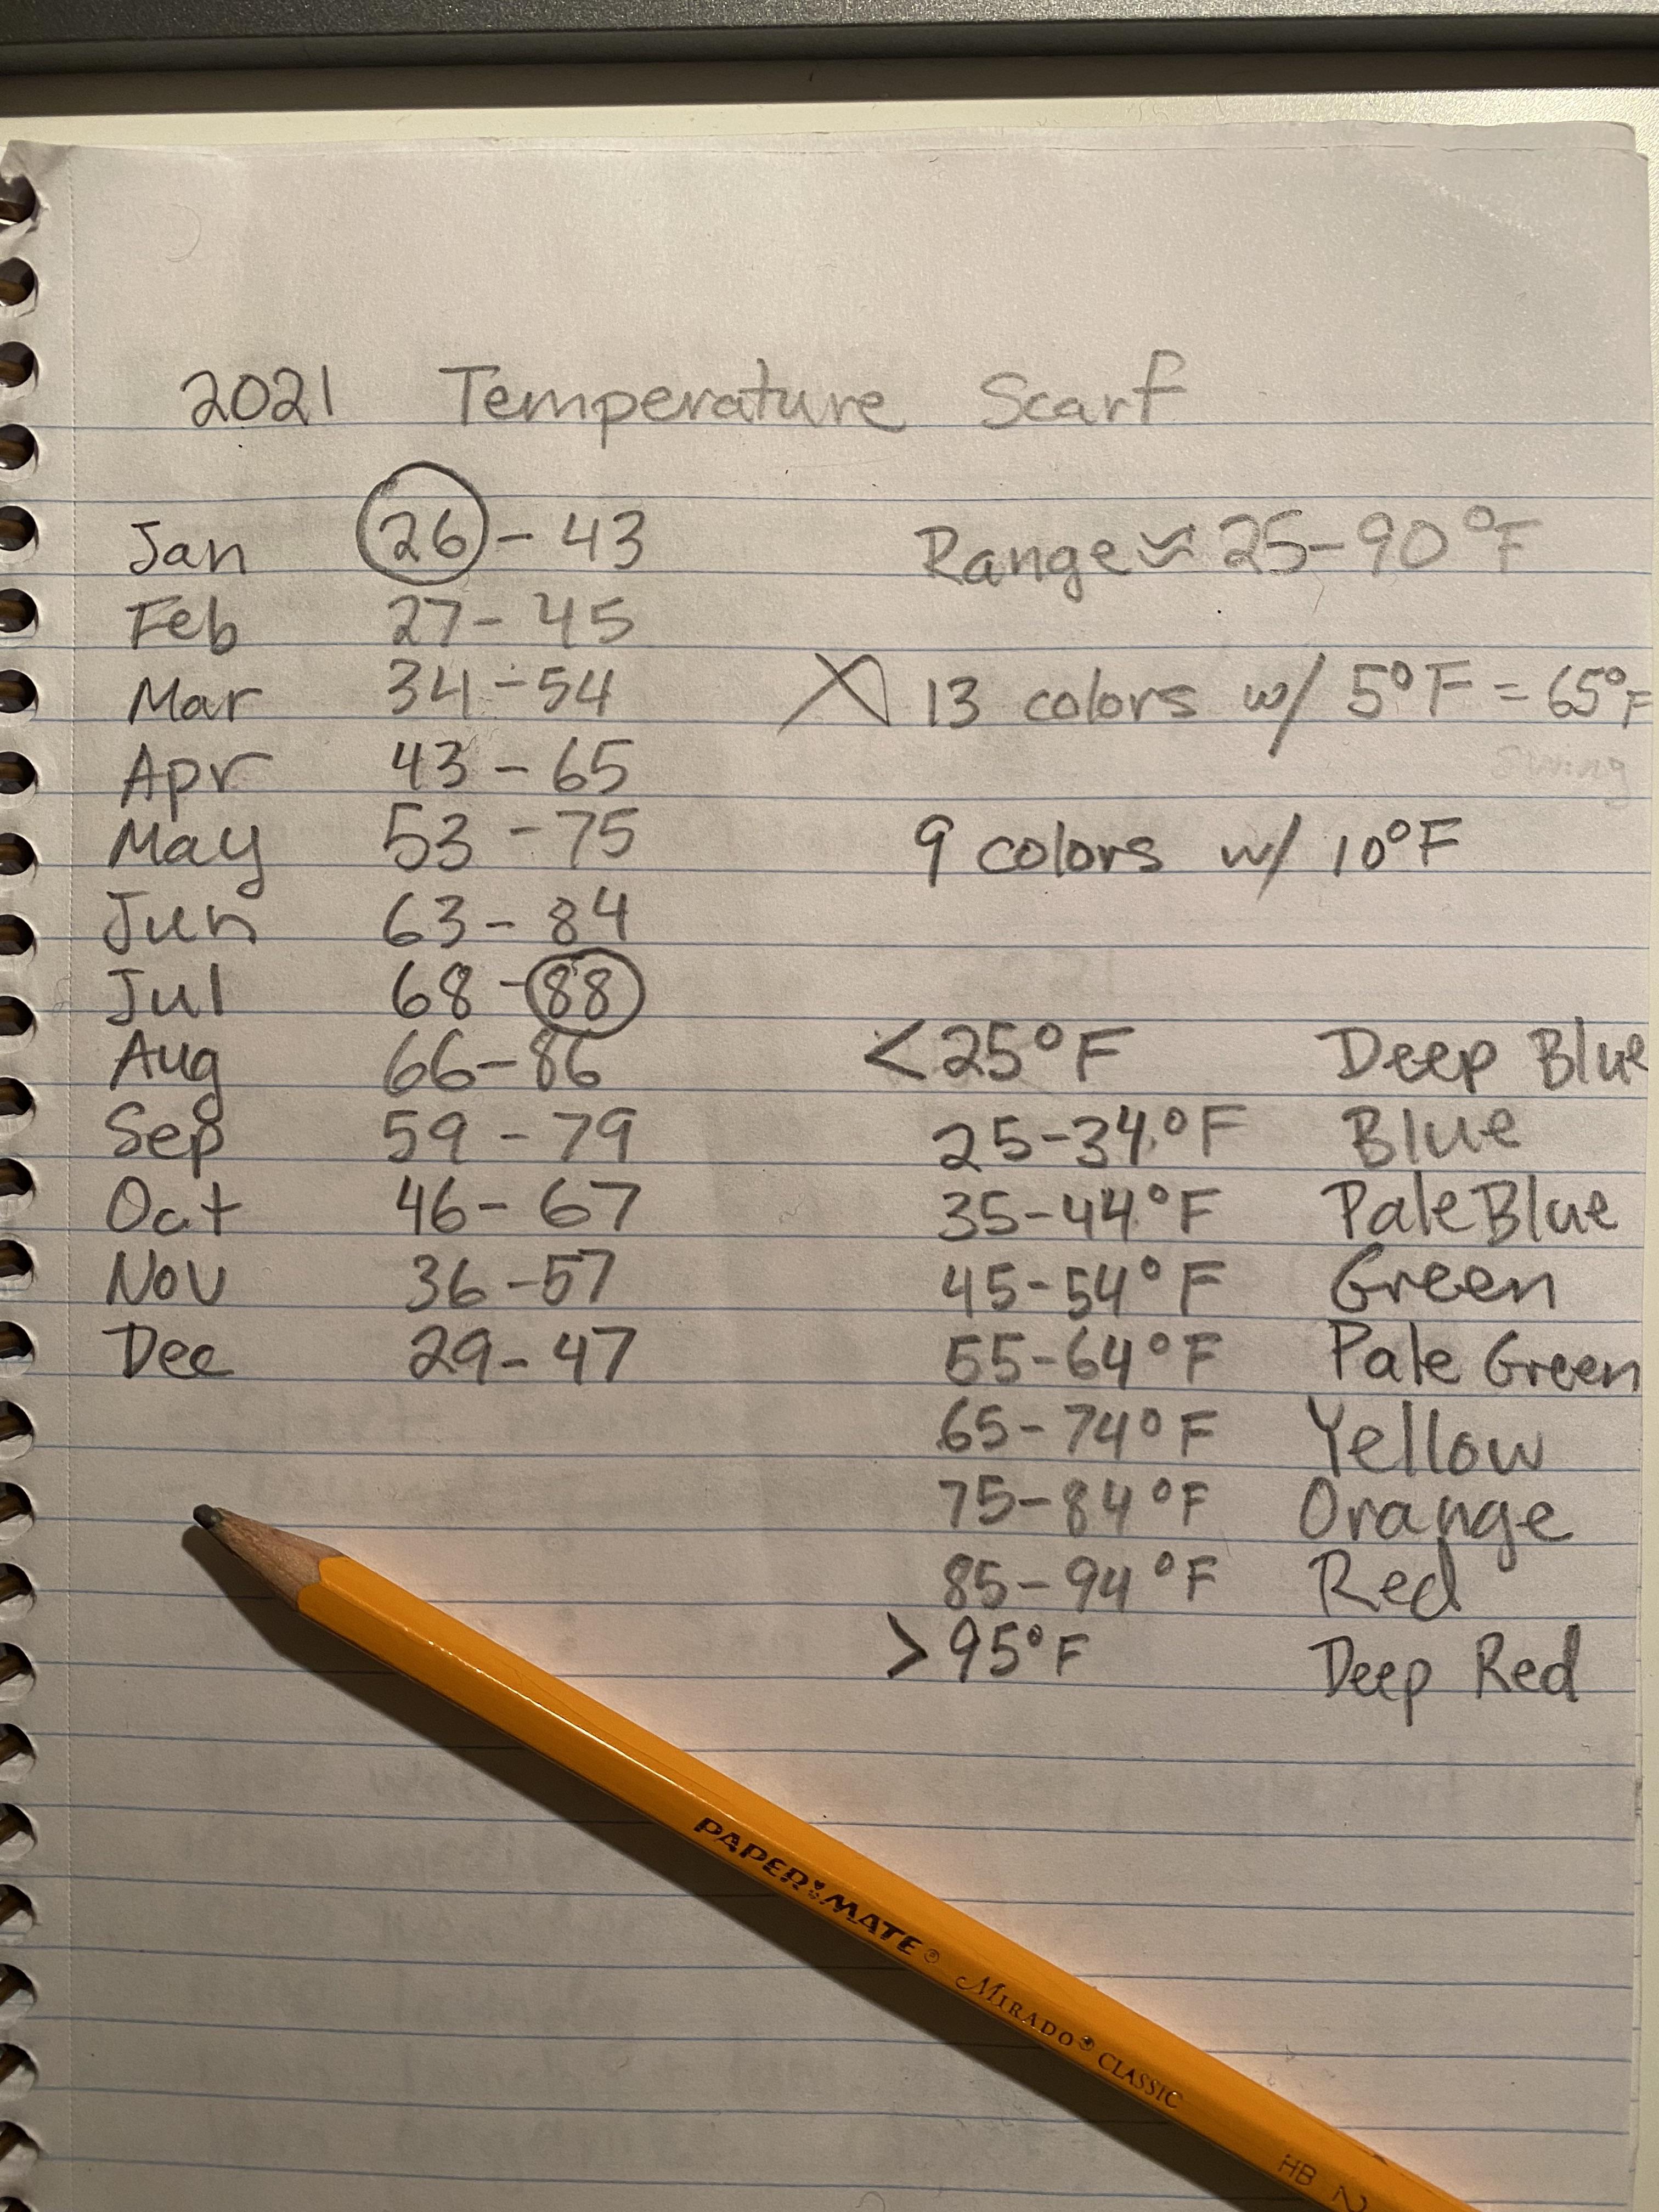 2021 Temperature Scarf
Jan 26 - 43
Feb 27 - 45
Mar 34 - 54
Apr 43 - 65
May 53 - 75
Jun 63 - 84
Jul 68 - 88
Aug 66 - 86
Sep 59 - 79
Oct 46 - 67
Nov 36 - 57
Dec 29 - 47
Range ≈ 25-90°F
X 13 colors w/ 5°F = 65°F
swing
9 colors w/ 10°F
<25°F Deep Blue
25-34°F Blue
35-44°F Pale Blue
45-54°F Green
55-64°F Pale Green
65-74°F Yellow
75-84°F Orange
85-94°F Red
>95°F Deep Red
PAPER:MATE® MIRADO® CLASSIC HB 2